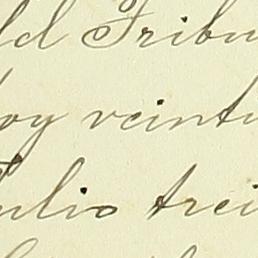 ld Tribu
oy veintu
ulio trei